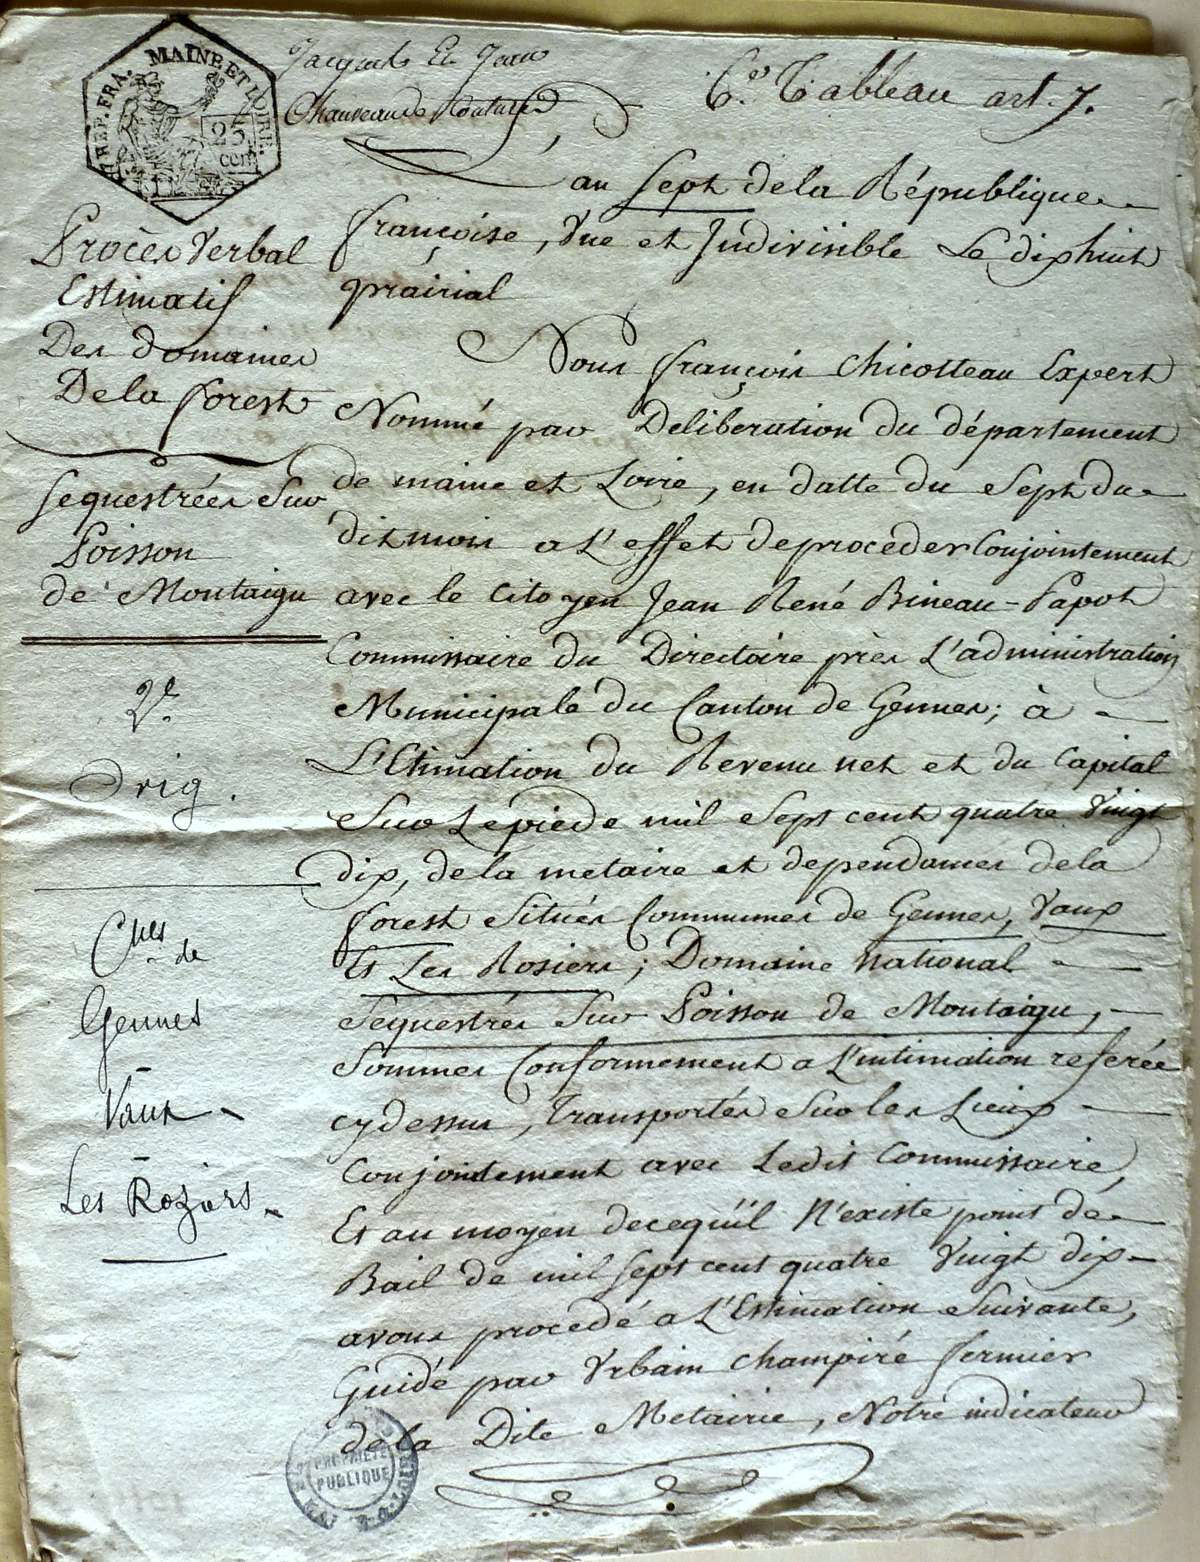 TIMBRE. REP. FRA. MAINE ET LOIRE.
25
cen
Jacques Et Jean
6e. Tableau art. 7.
an Sept de la République
françoise, Vne et Indivisible Le dix huit
prairial
Procès Verbal
Estimatif
Des domaines
De la forest
Sequestrées Sur
Poisson
de Montaigu
2e.
Orig.
Cnes de
Gennes
Vaux
Les Roziers
Nous françois Chicotteau Expert
Nommé par Deliberation du département
de maine et Loire, en datte du Sept du
dit mois a L'effet de proceder Conjointement
avec le Citoyen Jean René Bineau-Papot
Commissaire du Directoire près L'administration
Municipale du Canton de Gennes; à
L'Estimation du Revenu net et du Capital
Sur Le pied de mil Sept cent quatre Vingt
dix, de la metaire et dependances de la
forest Situés Communes de Gennes, Vaux
Et Les Rosiers; Domaine National
Sequestrés Sur Poisson de Montaigu,
Sommes Conformement a L'intimation referée
cy dessus, Transportés Sur les Lieux
Conjointement avec Ledit Commissaire,
Et au moyen de ce qu'il N'existe point de
Bail de mil Sept cent quatre Vingt dix
avons procédé a L'Estimation Suivante,
Guidé par Vrbain Champiré fermier
de la Dite Metairie, Notre indicateur
PROPRIÉTÉ
PUBLIQUE